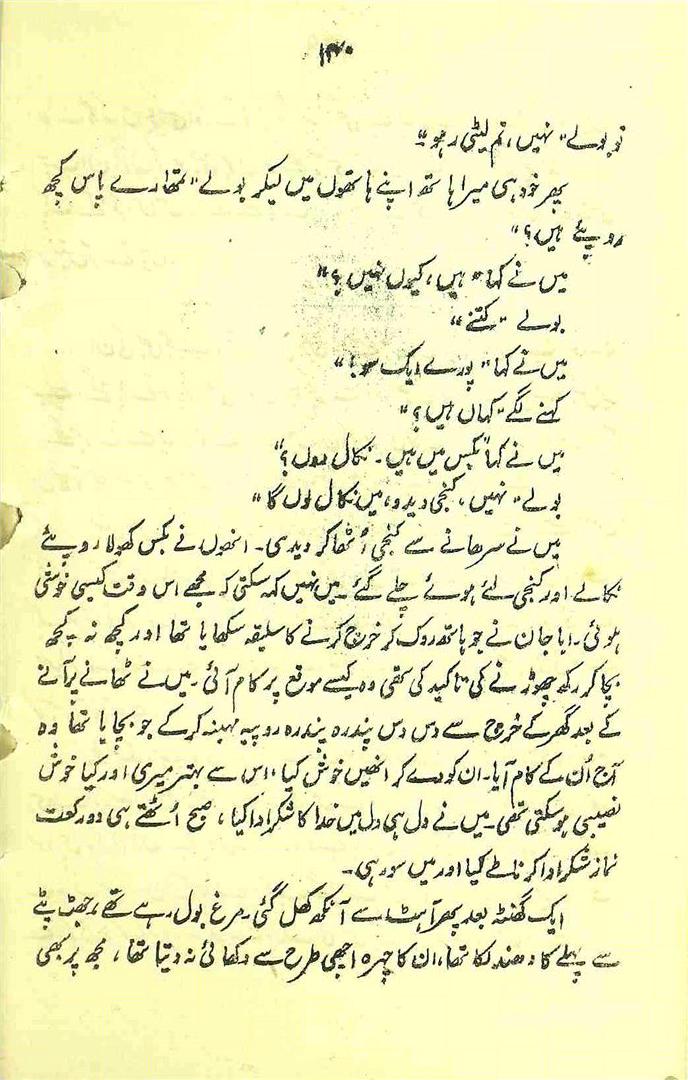 ۱۴۰
تو بولے "نہیں، تم لیٹی رہو۔"
پھر خود ہی میرا ہاتھ اپنے ہاتھوں میں لیکر بولے "تمھارے پاس کچھ
روپئے ہیں؟"
میں نے کہا "ہیں، کیوں نہیں؟"
بولے "کتنے"
میں نے کہا "پورے ایک سو!"
کہنے لگے "کہاں ہیں؟"
میں نے کہا "بکس میں ہیں۔ نکال دوں؟"
بولے "نہیں، کنجی دیدو، میں نکال لوں گا"
میں نے سرھانے سے کنجی اُٹھا کر دیدی۔ انھوں نے بکس کھولا روپئے
نکالے اور کنجی لئے ہوئے چلے گئے۔ میں نہیں کہہ سکتی کہ مجھے اس وقت کیسی خوشی
ہوئی۔ ابا جان نے جو ہاتھ روک کر خرچ کرنے کا سلیقہ سکھایا تھا اور کچھ نہ کچھ
بچا کر رکھ چھوڑنے کی تاکید کی تھی وہ کیسے موقع پر کام آئی۔ میں نے تھانے پر آنے
کے بعد گھر کے خرچ سے دس دس پندرہ پندرہ روپیہ مہینہ کر کے جو بچایا تھا وہ
آج اُن کے کام آیا۔ ان کو دے کر انھیں خوش کیا، اس سے بہتر میری اور کیا خوش
نصیبی ہو سکتی تھی۔ میں نے دل ہی دل میں خدا کا شکر ادا کیا، صبح اُٹھتے ہی دو رکعت
نماز شکر ادا کرنا طے کیا اور میں سو رہی۔
ایک گھنٹہ بعد پھر آہٹ سے آنکھ کھل گئی۔ مرغ بول رہے تھے، جھٹ پٹے
سے پہلے کا دھندلکا تھا، ان کا چہرہ اچھی طرح سے دکھائی نہ دیتا تھا، مجھ پر بھی